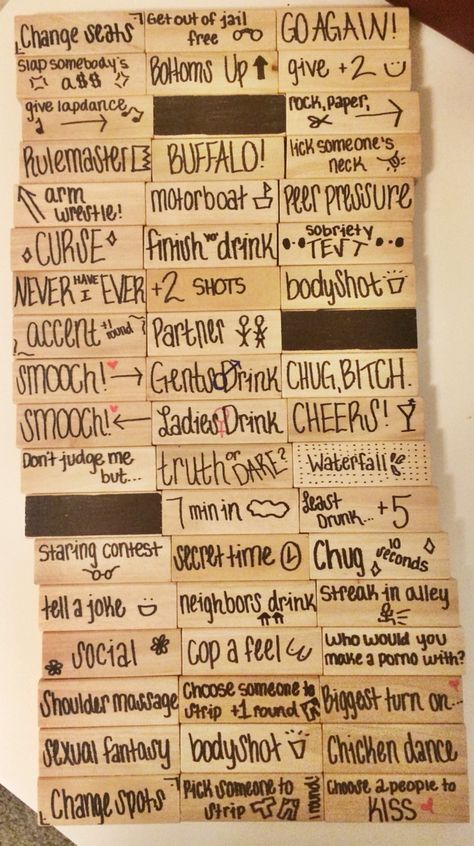 Change seats
Get out of jail
free
GO AGAIN!
slap somebody's
a$$
Bottoms Up
give +2
give lapdance
rock, paper,
Rulemaster
BUFFALO!
lick someone's
neck
arm
wrestle!
motorboat
peer pressure
CURSE
finish yo' drink
sobriety
TEST
NEVER HAVE I EVER
+2 SHOTS
bodyshot
accent +1 round
Partner
SMOOCH!
Gents Drink
CHUG, BITCH.
SMOOCH!
Ladies Drink
CHEERS!
Don't judge me
but...
truth or DARE?
Waterfall
7 min in
Least
Drunk... +5
Staring contest
secret time
Chug 10 seconds
tell a joke
neighbors drink
streak in alley
social
cop a feel
who would you
make a porno with?
Shoulder massage
Choose someone to
strip +1 round
Biggest turn on...
sexual fantasy
bodyshot
Chicken dance
Change spots
Pick someone to
strip 1 round
Choose 2 people to
KISS